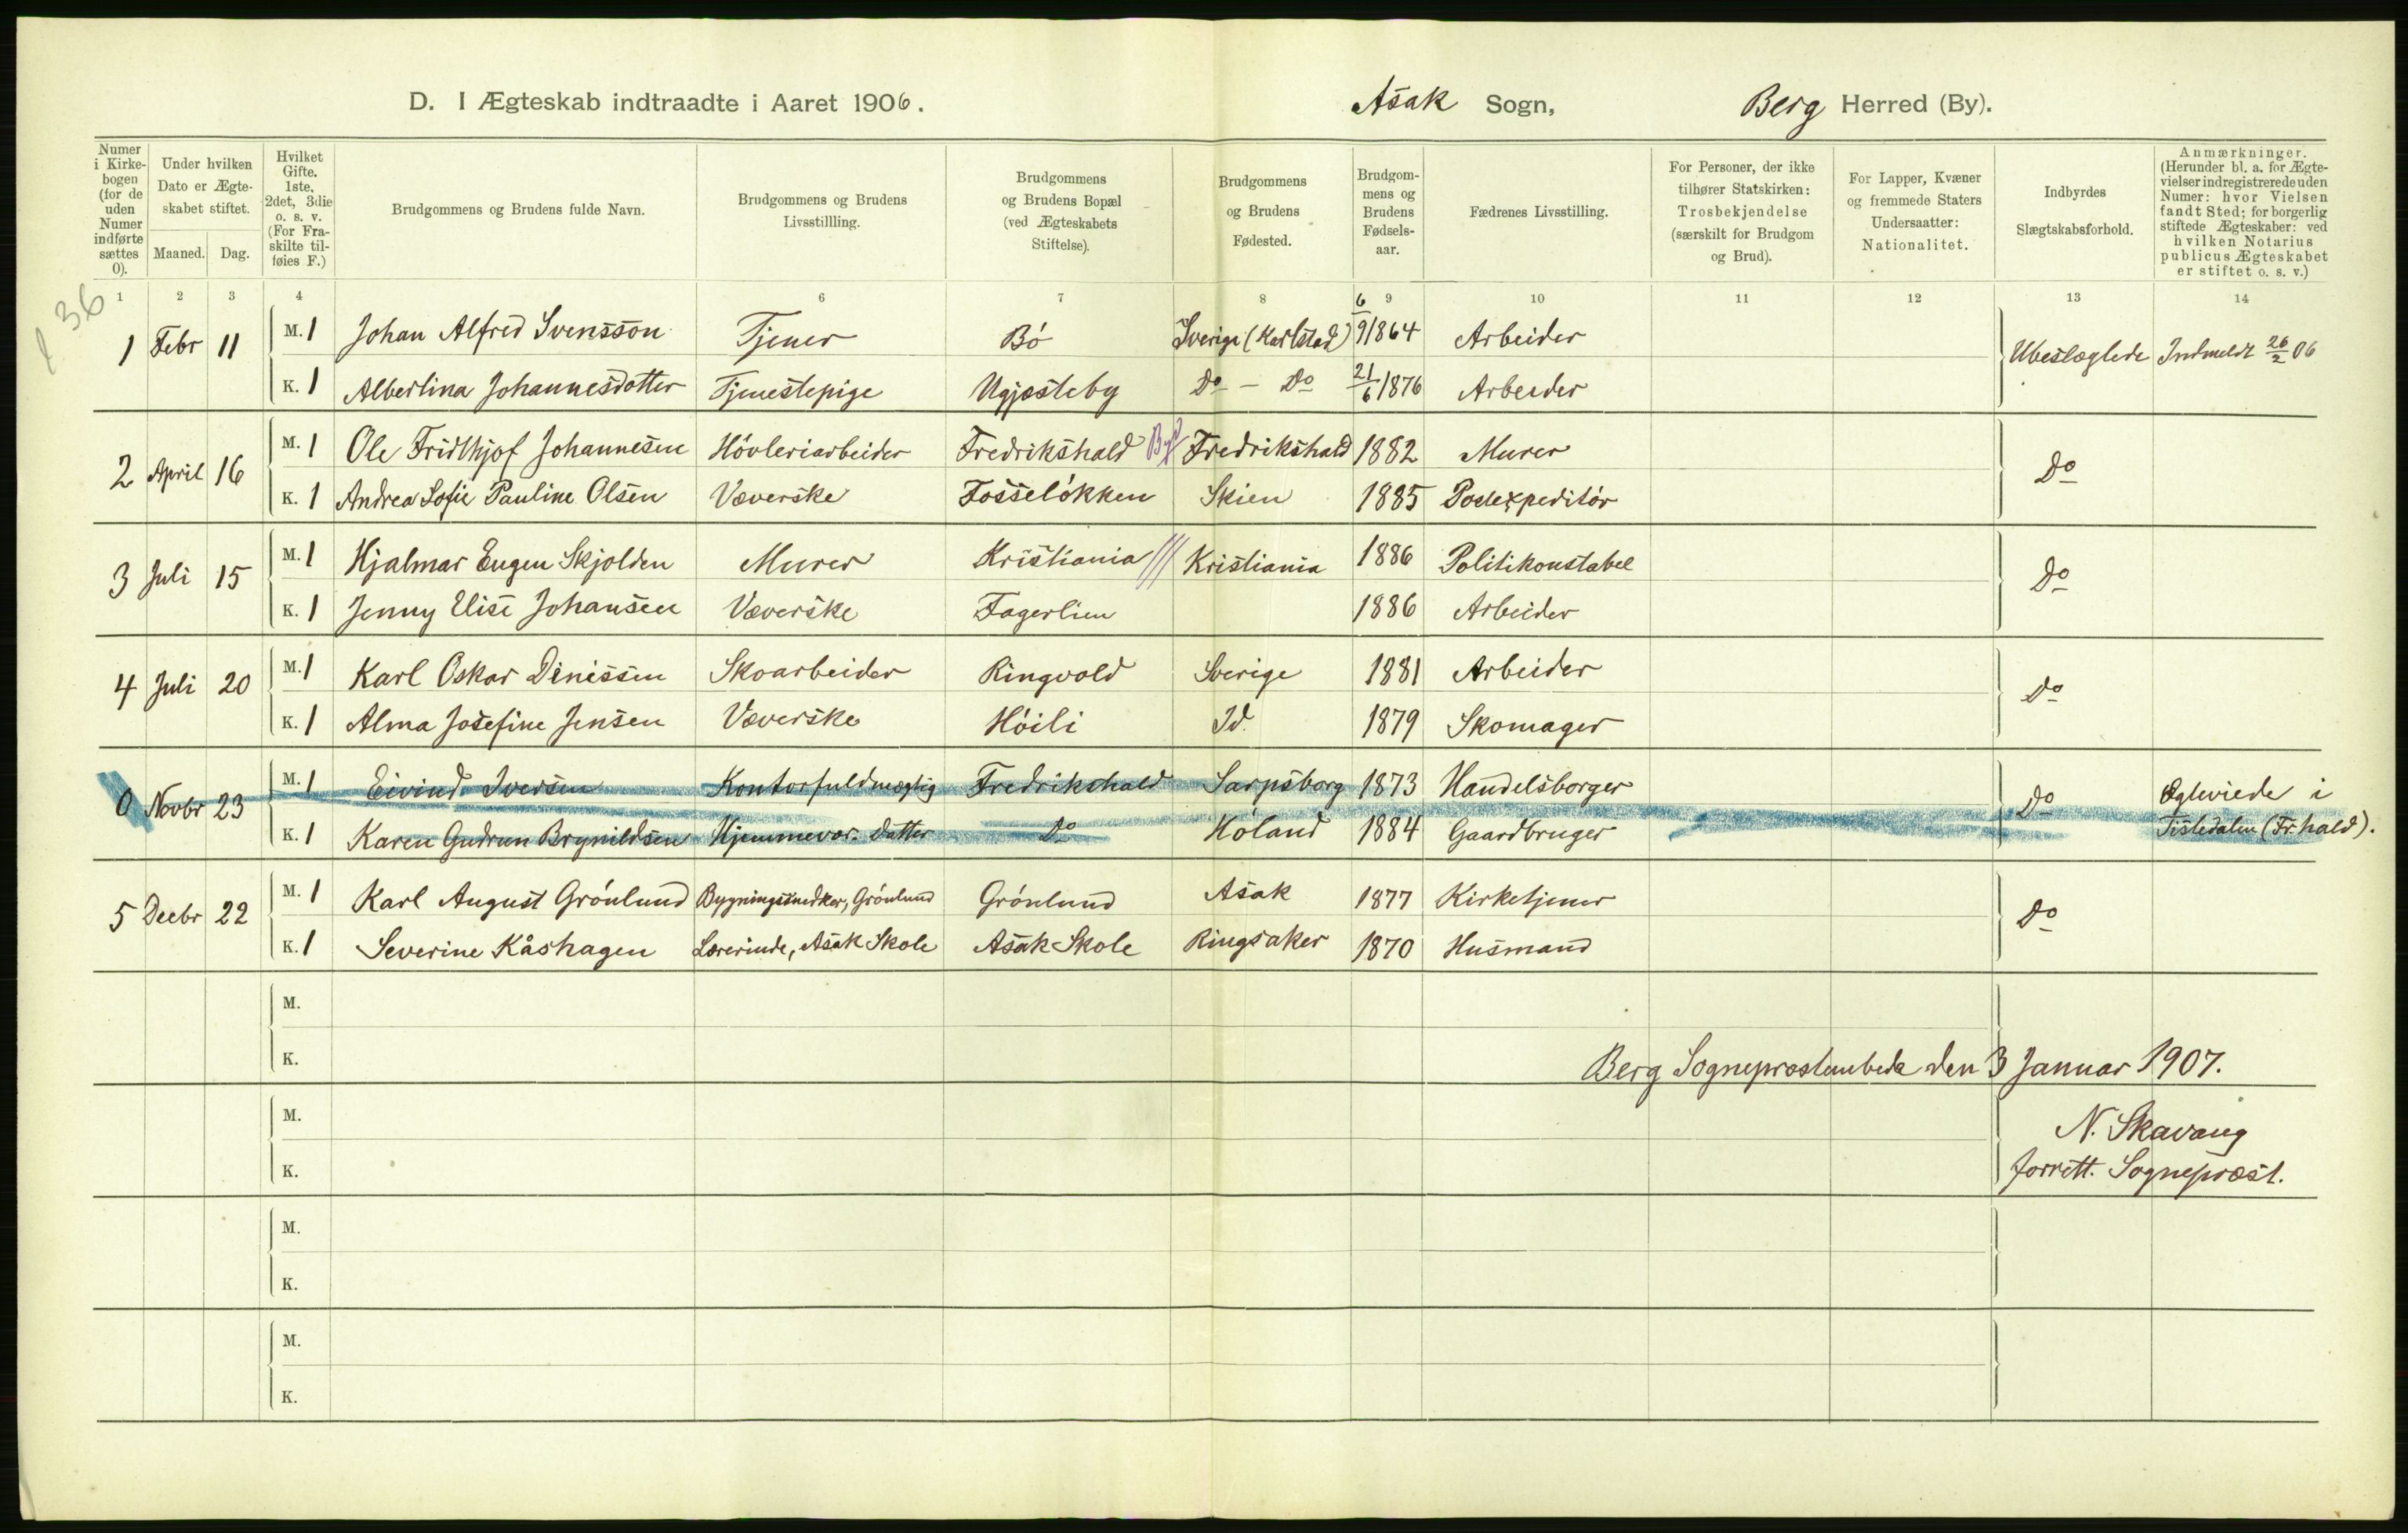 D. I Ægteskab indtraadte i Aaret 1906. Asak Sogn, Berg Herred (By).
Numer i Kirkebogen (for de uden Numer indførte sættes 0).
Under hvilken Dato er Ægteskabet stiftet.
Maaned. Dag.
Hvilket Gifte. 1ste, 2det, 3die o. s. v. (For Fraskilte tilføies F.)
Brudgommens og Brudens fulde Navn.
Brudgommens og Brudens Livsstillling.
Brudgommens og Brudens Bopæl (ved Ægteskabets Stiftelse).
Brudgommens og Brudens Fødested.
Brudgommens og Brudens Fødselsaar.
Fædrenes Livsstilling.
For Personer, der ikke tilhører Statskirken: Trosbekjendelse (særskilt for Brudgom og Brud).
For Lapper, Kvæner og fremmede Staters Undersaatter: Nationalitet.
Indbyrdes Slægtskabsforhold.
Anmærkninger. (Herunder bl. a. for Ægtevielser indregistrerede uden Numer: hvor Vielsen fandt Sted; for borgerlig stiftede Ægteskaber: ved hvilken Notarius publicus Ægteskabet er stiftet o. s. v.)
1 2 3 4 6 7 8 9 10 11 12 13 14
36
1 Febr 11 M. 1 Johan Alfred Svensson Tjener Bó Sverige (Karlstad) 6/9 1864 Arbeider Ubeslægtede Indmeldt 26/2 06
K. 1 Albertina Johannesdotter Tjenestepige Ugjesteby Do – Do 21/6 1876 Arbeider
2 April 16 M. 1 Ole Fridthjof Johannesen Hóvleriarbeider Fredrikshald By Fredrikshald 1882 Murer Do
K. 1 Andrea Sofie Pauline Olsen Væverske Fosselókken Skien 1885 Postexpeditór
3 Juli 15 M. 1 Hjalmar Eugen Skjolden Murer Kristiania Kristiania 1886 Politikonstabel Do
K. 1 Jenny Elise Johansen Væverske Fagerlien 1886 Arbeider
4 Juli 20 M. 1 Karl Oskar Dinissen Skoarbeider Ringvold Sverige 1881 Arbeider Do
K. 1 Alma Josefine Jensen Væverske Hóili Id. 1879 Skomager
0 Novbr 23 M. 1 Eivind Iversen Kontorfuldmægtig Fredrikshald Sarpsborg 1873 Handelsborger Do Ægteviede i
K. 1 Karen Gudrun Brynildsen Hjemmevær. Datter Do Hóland 1884 Gaardbruger Tistedalen (Fr.hald).
5 Decbr 22 M. 1 Karl August Grónlund Bygningssnedker, Grónlund Grónlund Asak 1877 Kirketjener Do
K. 1 Severine Kåshagen Lærerinde, Asak Skole Asak Skole Ringsaker 1870 Husmand
M.
K.
Berg Sognepræstembede den 3 Januar 1907.
M.
N. Skavang
K.
forrett. Sogneprest.
M.
K.
M.
K.